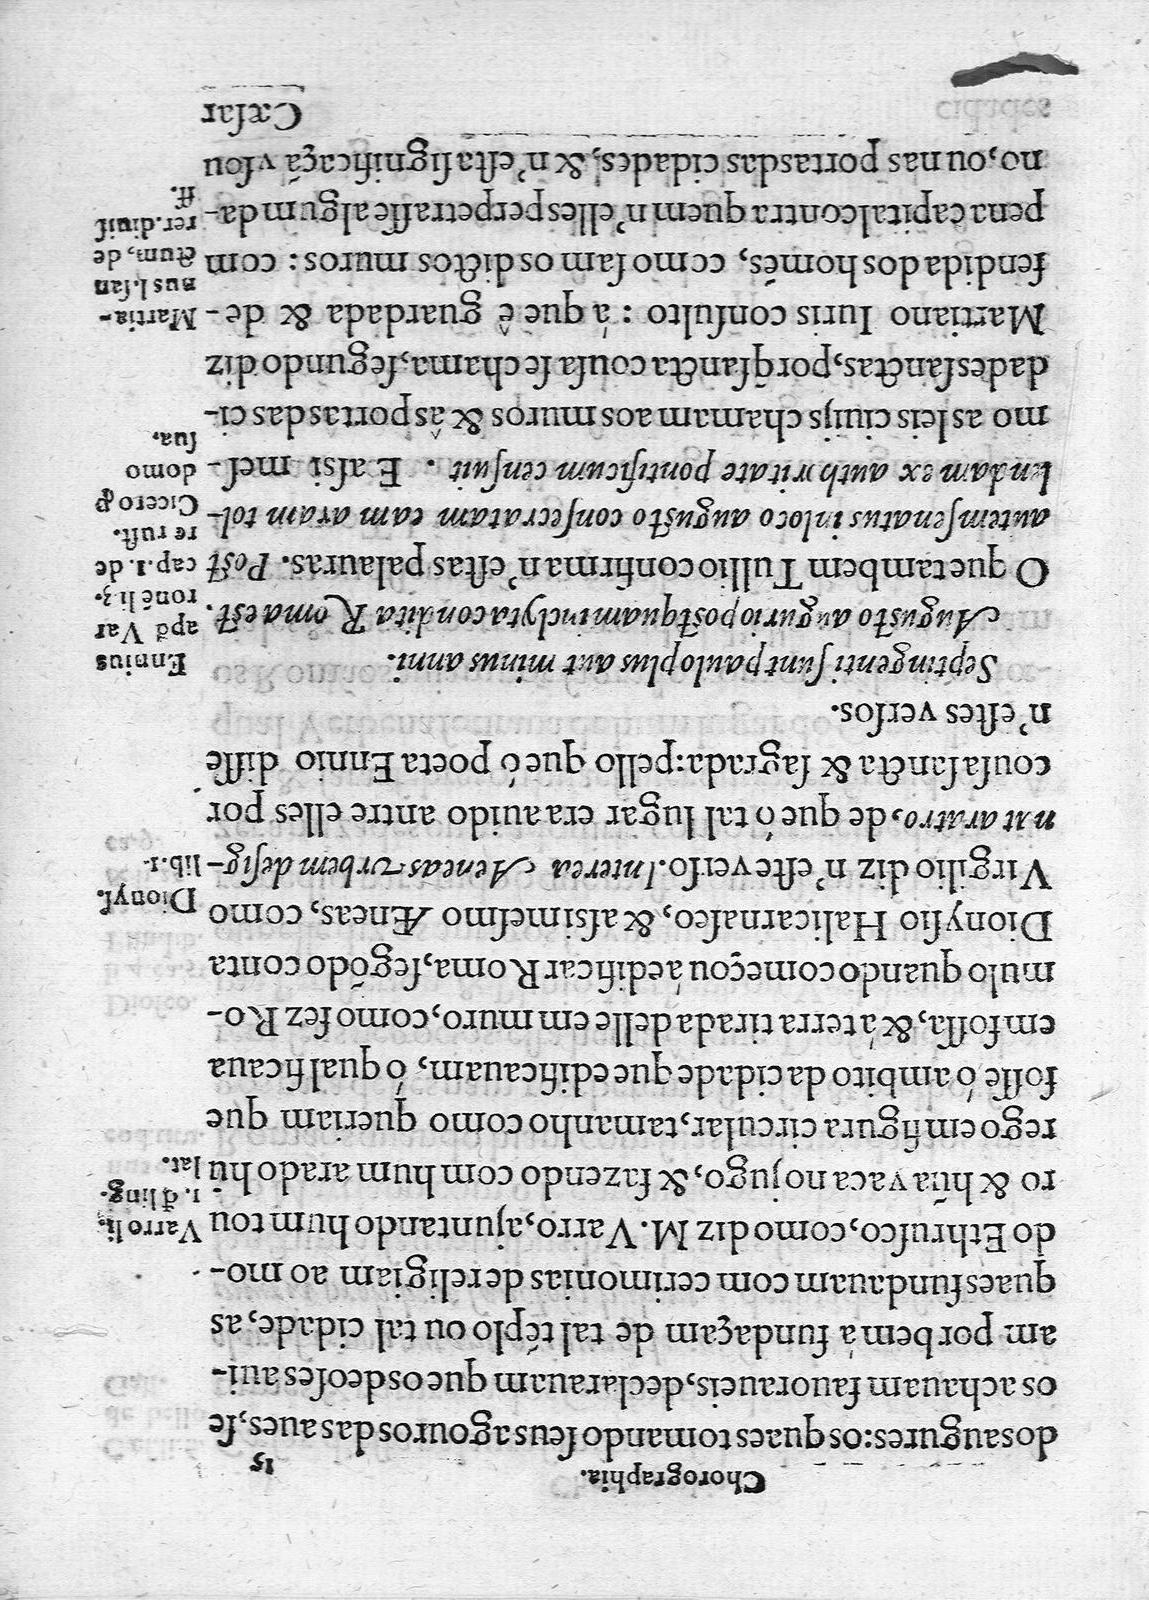 Chorographia. 15
dos augures: os quaes tomando seus agouros das aues, se
os achauam fauoraueis, declarauam que os deoses aui-
am por bem á fundaçam de tal tẽplo ou tal cidade, as
quaes fundauam com cerimonias de religiam ao mo-
do Ethrusco, como diz M. Varro, ajuntando hum tou
ro & hũa vaca no jugo, & fazendo com hum arado hu
rego em figura circular, tamanho como queriam que
fosse ó ambito da cidade que edificauam, ó qual ficaua
em fossa, & á terra tirada delle em muro, como fez Ro-
mulo quando começou á edificar Roma, segõdo conta
Dionysio Halicarnaseo, & assi mesmo Æneas, como
Virgilio diz n'este verso. Interea Aeneas vrbem desig-
nat aratro, de que ó tal lugar era auido antre elles por
cousa sancta & sagrada: pello que ó poeta Ennio disse
n'estes versos.
Septingenti sunt paulo plus aut minus anni.
Augusto augurio postquam inclyta condita Roma est.
O que tambem Tullio confirma n'estas palauras. Post
autem senatus in loco augusto consecratam eam aram tol-
lendam ex authoritate pontificum censuit. E assi mes-
mo as leis ciuijs chamam aos muros & âs portas das ci-
dades sanctas, porq̃ sancta cousa se chama, segundo diz
Martiano Iuris consulto: á que ê guardada & de-
fendida dos homẽs, como sam os dictos muros: com
pena capital contra quem n'elles perpetrasse algum da-
no, ou nas portas das cidades, & n'esta significaçã vsou
Cæsar
Varro li.
1. đ ling.
lat.
Dionys.
lib. 1.
Ennius
apđ Var
ronẽ li 3.
cap. 1. de
re rust.
Cicero ꝓ
domo
sua.
Martia-
nus l. san
ctum, de
rer. diuis
ff.